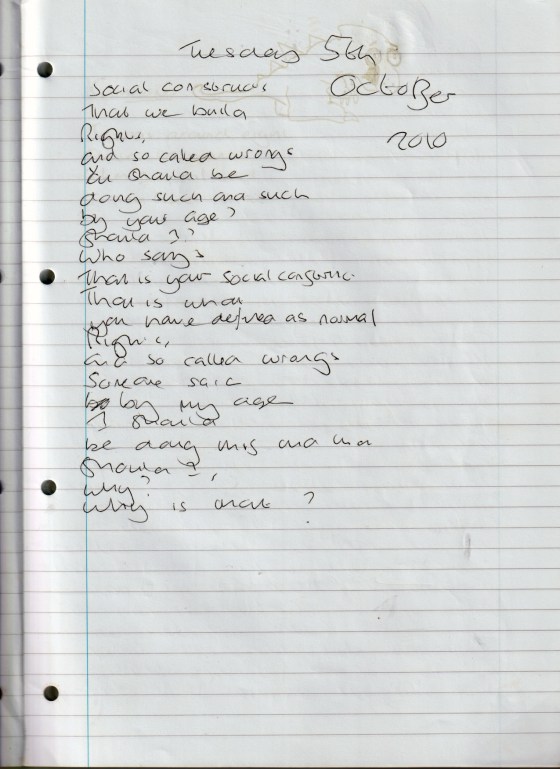 Tuesday 5th
October
2010
Social constructs
That we build
Rights,
and so called wrongs
You should be
doing such and such
by your age?
Should I?
Who says
That is your social construct
That is what
you have defined as normal
Rights,
and so called wrongs
Someone said
by my age
I should
be doing this and that
Should I,
Why?
Why is that?